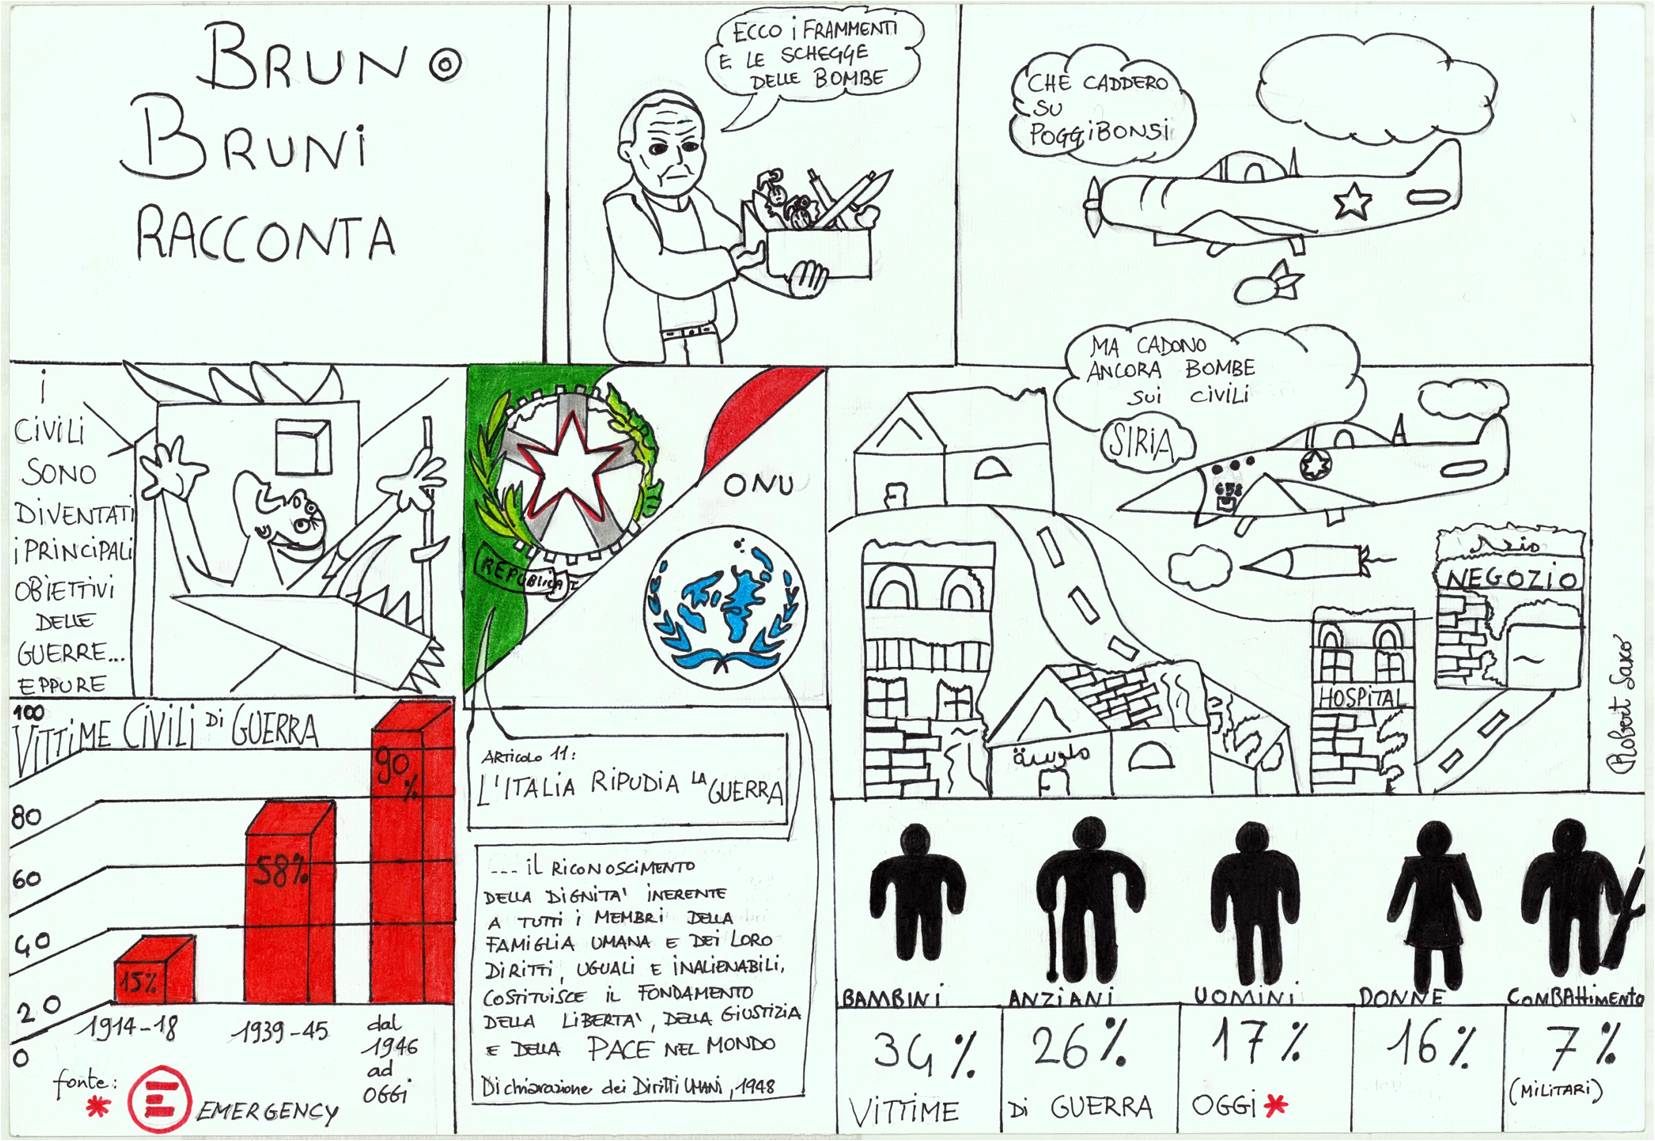 BRUNO
BRUNI
RACCONTA
ECCO i FRAMMENTi
E LE SCHEGGE
DELLE BOMBE
CHE CADDERO
SU
POGGiBONSi
i
CiViLi
SONO
DiVENTATi
i PRiNCiPALi
OBiETTiVi
DELLE
GUERRE...
EPPURE
REPUBLiCA I
ONU
MA CADONO
ANCORA BOMBE
SUi CiViLi
SiRiA
NEGOZiO
HOSPiTAL
Robert Saxo
100
ViTTiME CiViLi Di GUERRA
80
60
40
20
0
15%
58%
90
%
1914-18
1939-45
dal
1946
ad
OGGi
fonte:
*
E
EMERGENCY
ARTiCOLO 11:
L'iTALiA RiPUDiA LA GUERRA
--- iL RiCONOSCiMENTO
DELLA DiGNiTA' iNERENTE
A TUTTi i MEMBRi DELLA
FAMiGLiA UMANA E DEi LORO
DiRiTTi, UGUALi E iNALiENABiLi,
COSTiTUiSCE iL FONDAMENTO
DELLA LiBERTA', DELLA GiUSTiZiA
E DELLA PACE NEL MONDO
Dichiarazione dei DiRiTTi UMANi, 1948
BAMBiNi
ANZiANi
UOMiNi
DONNE
COMBATTiMENTO
34%
26%
17%
16%
7%
(MiLiTARi)
ViTTiME Di GUERRA OGGi *